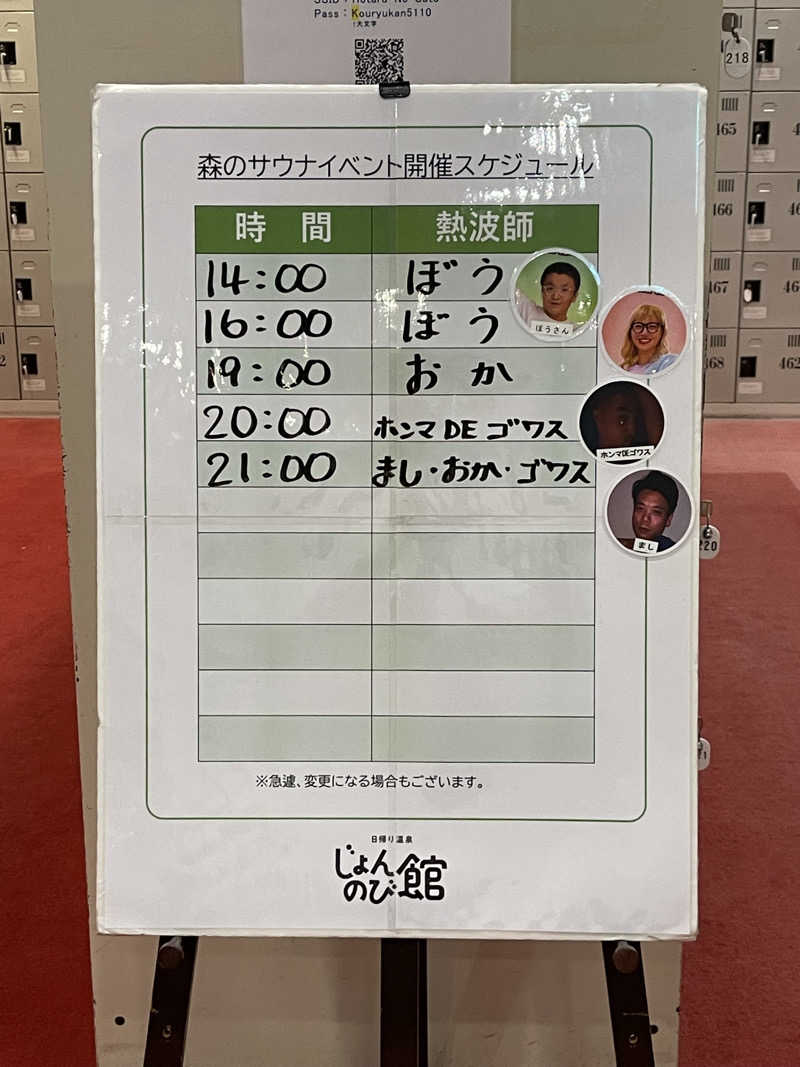 Pass：Kouryukan5110
↑大文字
森のサウナイベント開催スケジュール
時 間 熱波師
14:00 ぼう
16:00 ぼう
19:00 おか
20:00 ホンマDEゴワス
21:00 まし・おか・ゴワス
ぼうさん
ホンマDEゴワス
まし
※急遽、変更になる場合もございます。
日帰り温泉
じょんのび館
218
465
466
467
468
462
220